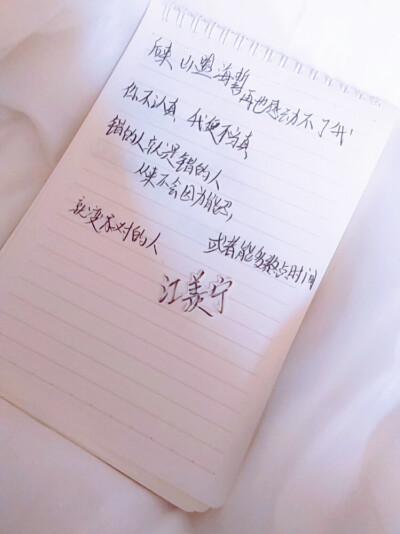 后来 山盟海誓再也感动不了我
你不认真 我便不当真
错的人就是错的人
从来不会因为能忍,
或者能多熬点时间
就变成对的人
江羡宁